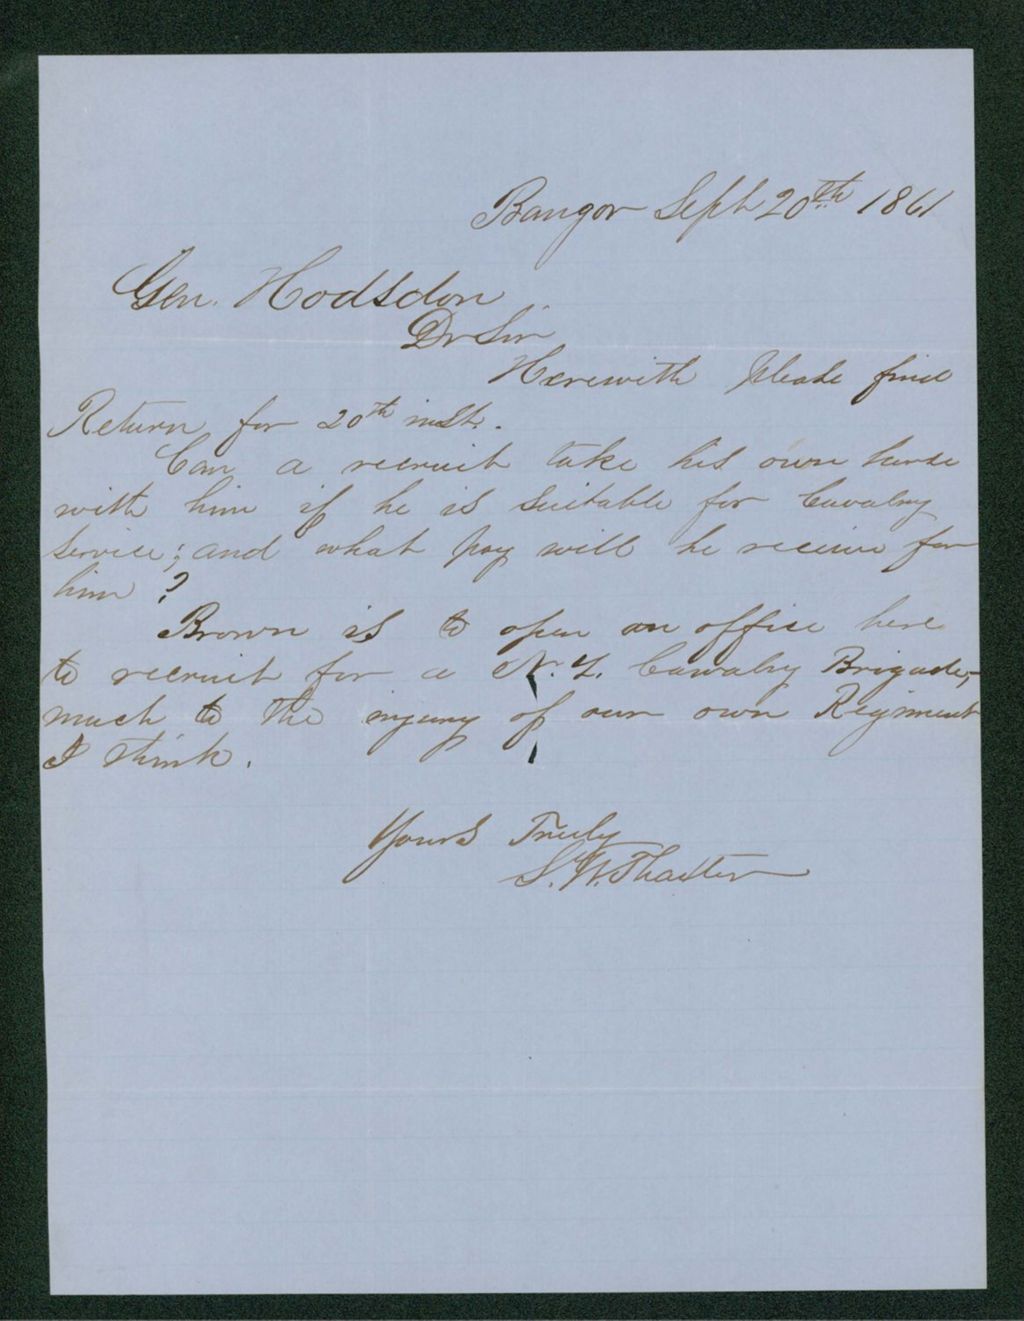 Bangor Sept 20th 1861
Gen. Hodsdon
Dr Sir
Herewith please find
Return for 20th inst.
Can a recruit take his own horse
with him if he is suitable for Cavalry
service; and what pay will he receive for
him?
Brown is to open an office here
to recruit for a N.Y. Cavalry Brigade,
much to the injury of our own Regiment
I think.
Yours Truly
S. W. Thaxter